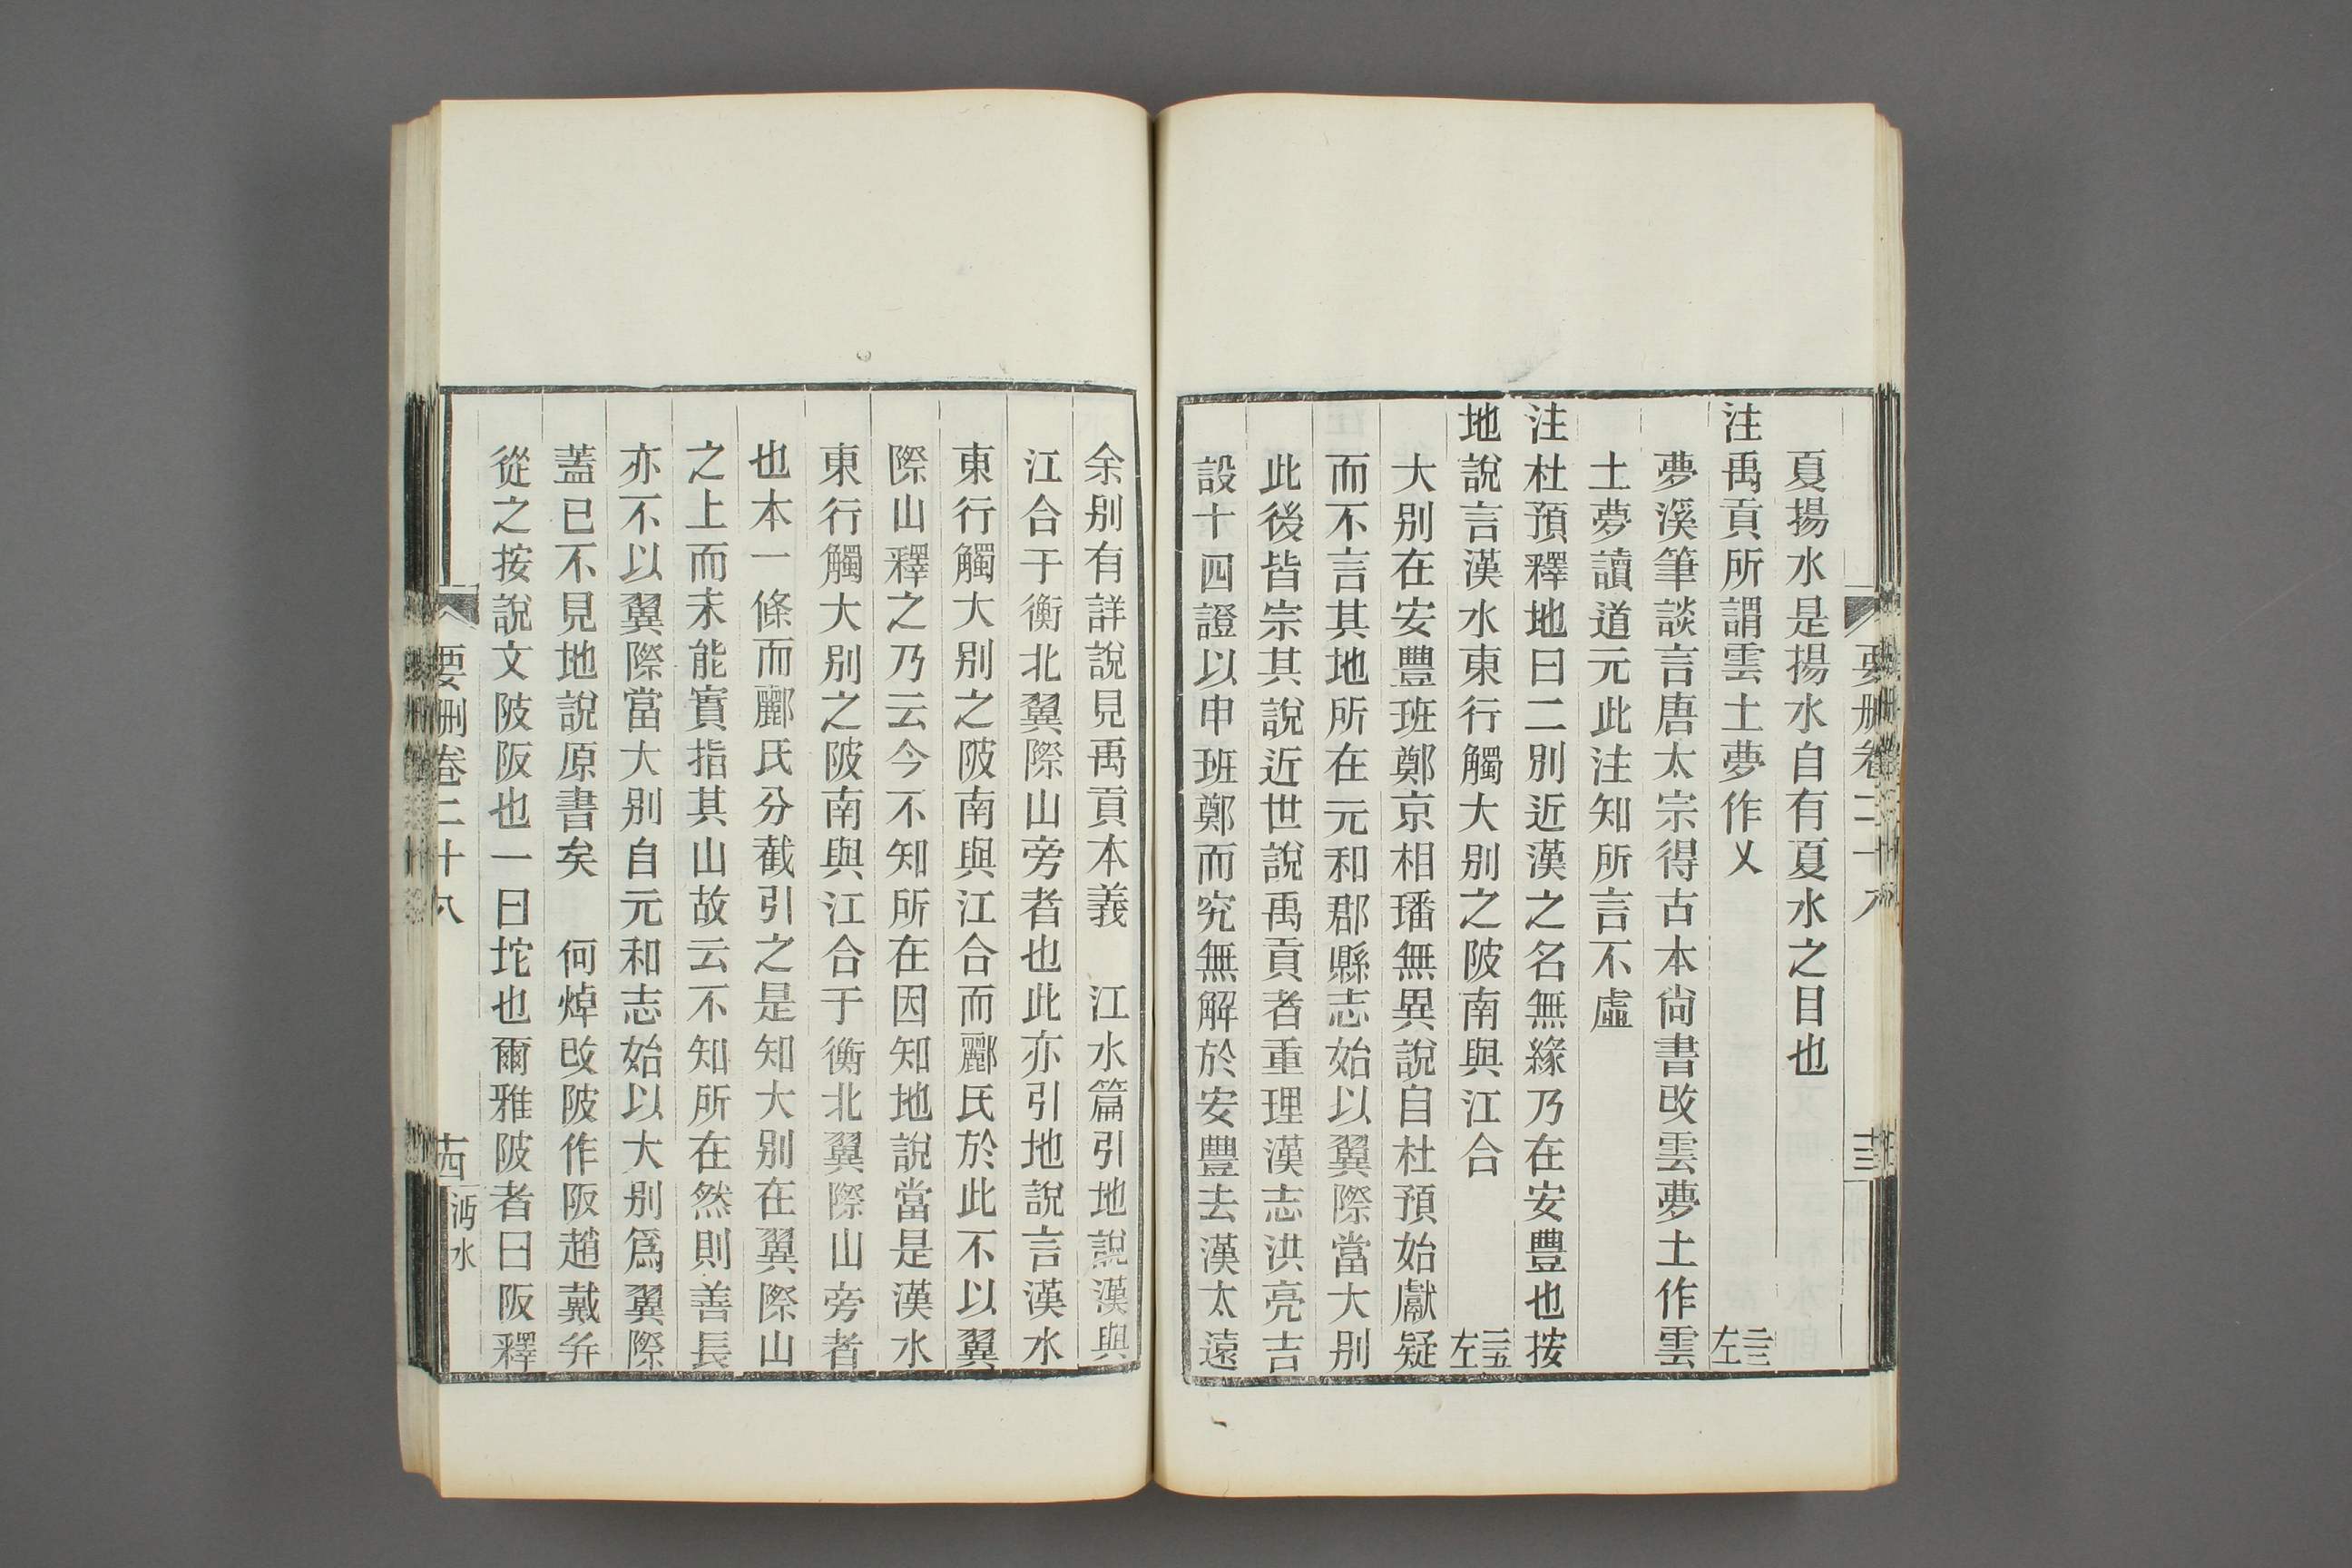 要刪卷二十八
十三
夏揚水是揚水自有夏水之目也
注禹貢所謂雲土夢作乂 三三左
夢溪筆談言唐太宗得古本尚書改雲夢土作雲
土夢讀道元此注知所言不虛
注杜預釋地曰二別近漢之名無緣乃在安豐也按
地說言漢水東行觸大別之陂南與江合 三五左
大別在安豐班鄭京相璠無異說自杜預始獻疑
而不言其地所在元和郡縣志始以翼際當大別
此後皆宗其說近世說禹貢者重理漢志洪亮吉
設十四證以申班鄭而究無解於安豐去漢太遠
余別有詳說見禹貢本義　江水篇引地說漢與
江合于衡北翼際山旁者也此亦引地說言漢水
東行觸大別之陂南與江合而酈氏於此不以翼
際山釋之乃云今不知所在因知地說當是漢水
東行觸大別之陂南與江合于衡北翼際山旁者
也本一條而酈氏分截引之是知大別在翼際山
之上而未能實指其山故云不知所在然則善長
亦不以翼際當大別自元和志始以大別爲翼際
蓋已不見地說原書矣　何焯改陂作阪趙戴幷
從之按說文陂阪也一曰坨也爾雅陂者曰阪釋
要刪卷二十八
十四
沔水